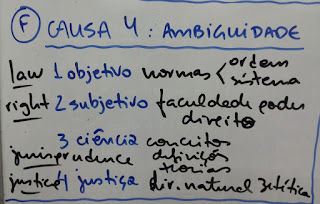 F CAUSA 4: AMBIGUIDADE
law 1 objetivo normas < ordem
sistema
right 2 subjetivo faculdade poder
direito
3 ciência conceitos
jurisprudence definições
teorias
justice 4 justiça dir. natural